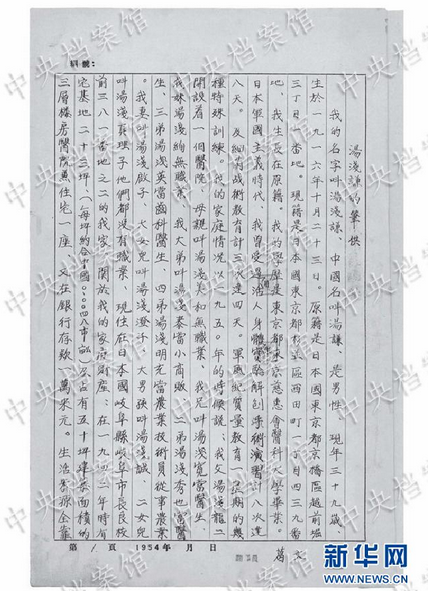 湯淺謙的筆供
我的名字叫湯淺謙、中國名叫湯謙、是男性、現年三十九歲、
生於一九一六年十月二十三日。原籍是日本國東京都京橋區越前堀
三丁目十番地。現籍是日本國東京都杉並區西田町一丁目四三九番
地、我生長在原籍。我的學歷是東京都東京慈惠會醫科大學畢業。
日本軍國主義時代、我曾受過活人身體實驗解剖手術演習計八次連
八天。及細菌战術教育計三次連四天。軍風紀質量教育一星期的幾
種特殊訓練。我的家庭情况以一九五〇年的時候說：我父湯淺龍二
開設着一個醫院、母親叫湯淺美和無職業、我兄湯淺寛當醫生、
我妹湯淺絢無職業、我大弟湯淺泰當小商做、二弟湯淺秀也當醫
生、三弟湯淺英當齒科醫生、四弟湯淺明光當農業技術員從事農業
。我妻叫湯淺啟子、大女兒叫湯淺澄子、大男孩叫湯淺誠、二女兒
叫湯淺真理子他們都沒有職業 現住在日本國岐阜縣岐阜市長良校
前三八一番地之二的我家。關於我的家庭財產：在一九四二年時有
宅基地二十三坪、(每坪約合中國 四八市畝)及占有五十坪建築面積的
三層樓房醫院兼住宅一座 又在銀行存欵一萬米元。生活資源全靠
第1頁 1954年 月 日
中央档案馆
新华网
WWW.NEWS.CN